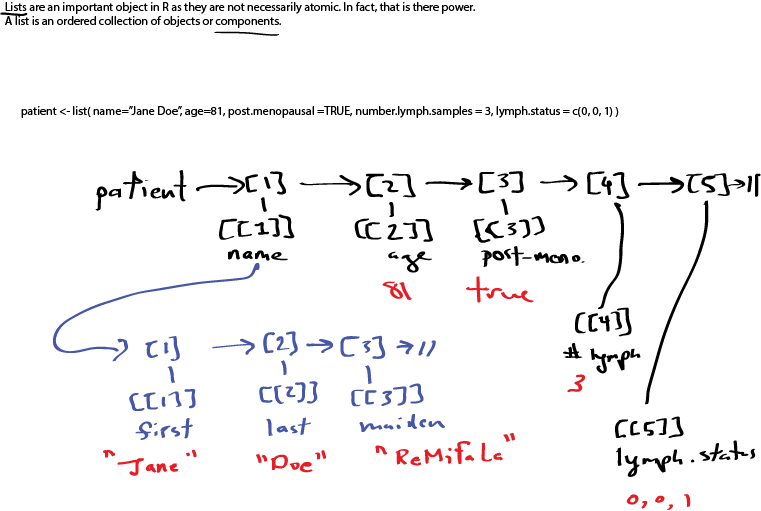 Lists are an important object in R as they are not necessarily atomic. In fact, that is there power.
A list is an ordered collection of objects or components.
patient <- list( name="Jane Doe", age=81, post.menopausal =TRUE, number.lymph.samples = 3, lymph.status = c(0, 0, 1) )
patient → [1] → [2] → [3] → [4] → [5] → ||
[[1]] [[2]] [[3]]
name age post-meno.
81 true
[[4]]
# lymph
3
[1] → [2] → [3] → ||
[[1]] [[2]] [[3]]
first last maiden
"Jane" "Doe" "ReMifaLa"
[[5]]
lymph.status
0, 0, 1